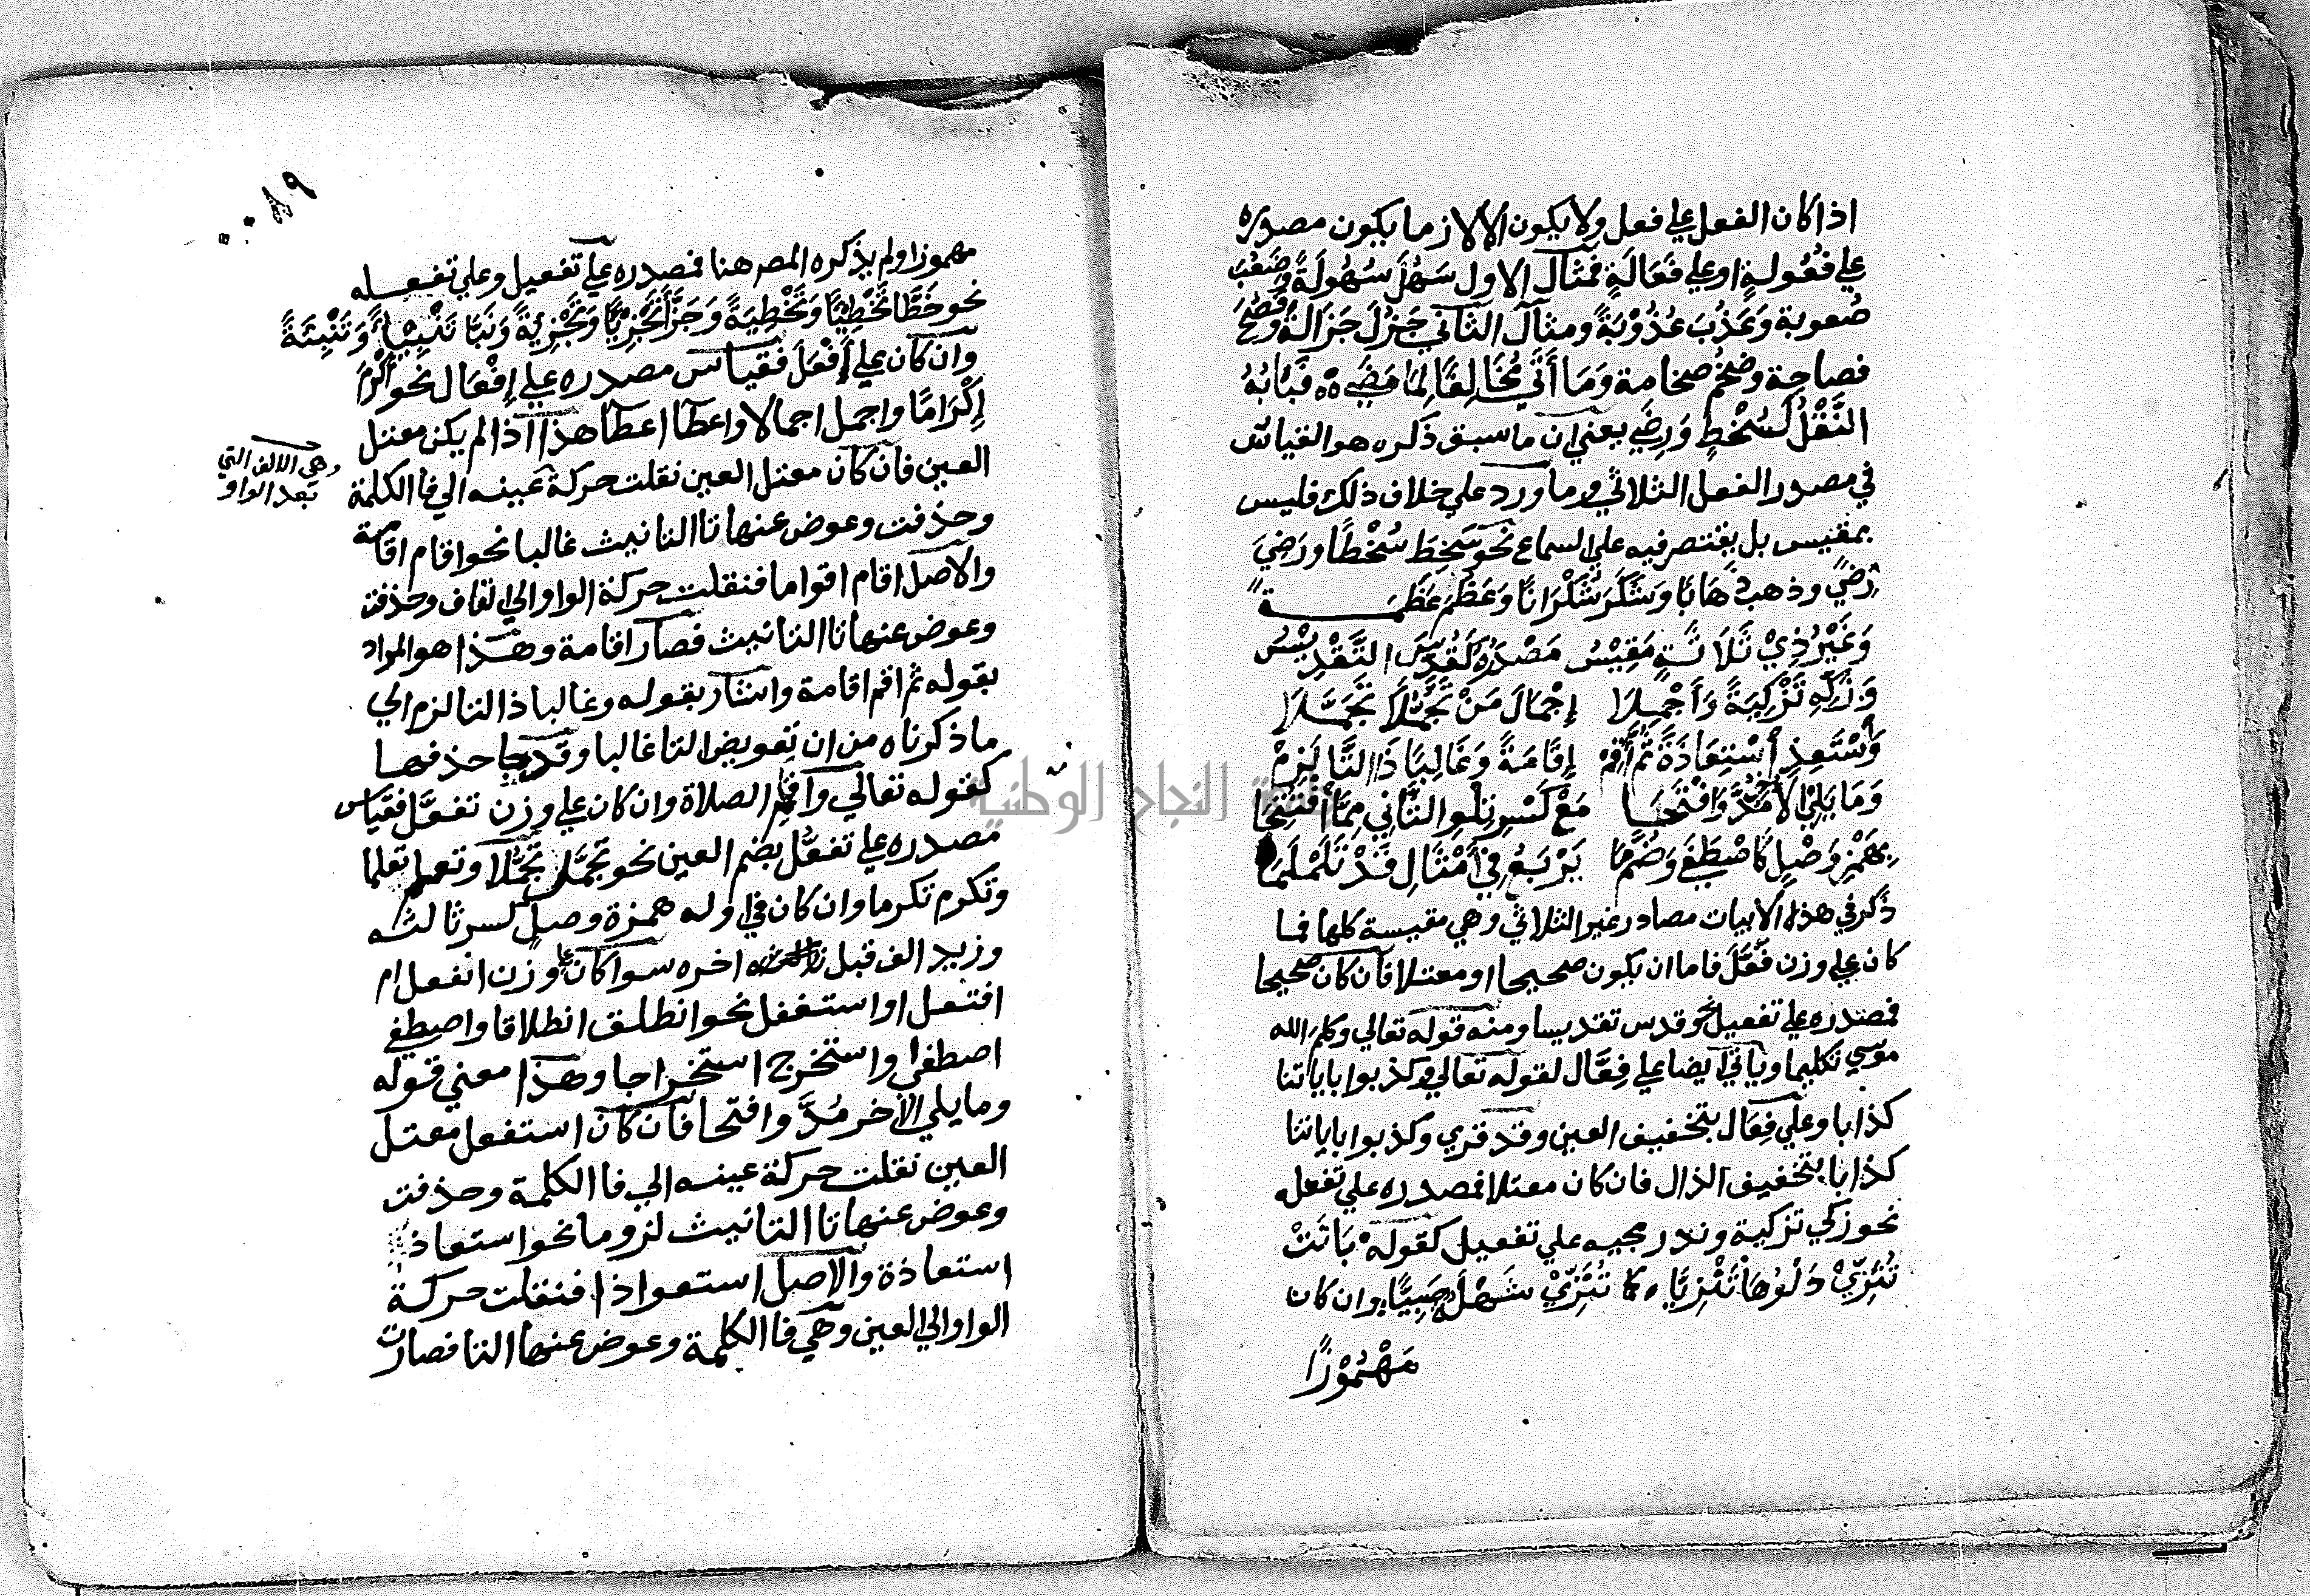 اذا كان الفعل علي فعل ولا يكون الا لازما يكون مصدره
علي فُعُولةٍ او علي فَعَالَةٍ فمثال الاول سَهُلَ سُهُولَةً وصَعُبَ
صُعوبة وَعَذُبَ عُذُوْبَةً ومثال الثاني جَزُلَ جَزَالةً وفَصُحَ
فصاحة وضَخُمَ ضخامة وَمَا أَتَي مُخَالِفًا لِمَا مَضَي ه فَبَابُهُ
النَّقْلُ كَسُخْطٍ وَرِضَي يعني ان ما سبق ذكره هو القياس
في مصدر الفعل الثلاثي وما ورد علي خلاف ذلك فليس
بمقيس بل يقتصر فيه علي السماع نحو سَخِطَ سُخْطًا ورَضِيَ
رِضيً وذهب ذَهَابًا وَشَكَرَ شُكْرَانًا وَعَظُمَ عَظَمَةً
وَغَيْرُ ذِيْ ثَلَاثَةٍ مَقِيْسُ مَصْدَرُهُ كَقُدِّسَ التَّقْدِيْسُ
وَزَكِّهِ تَزْكِيَةً وَأَجْمِلَا إِجْمَالَ مَنْ تَجَمُّلًا تَجَمَّلَا
وَأسْتَعِذِ أسْتِعَاذَةً ثُمَّ أَقِمْ إِقَامَةً وَغَالِبًا ذَا التَّا لَزِمْ
وَمَا يَلِيْ الآخِرُ مُدَّ وَافْتَحَا مَعْ كَسْرِ تِلْوِ الثَّانِي مِمَّا أفْتُتِحَا
بِهَمْزِ وَصْلٍ كَاصْطَفَي وَضُمَّ مَا يَرْبَعُ فِيْ أَمْثَالِ قَدْ تَلَمْلَمَا
ذكر في هذه الابيات مصادر غير الثلاثي وهي مقيسة كلها فما
كان علي وزن فَعَّلَ فاما ان يكون صحيحا او معتلا فان كان صحيحا
فمصدره علي تفعيل نحو قدس تقديسا ومنه قوله تعالي وكلم الله
موسي تكليما وياتي ايضا علي فِعَّال لقوله تعالي وكذبوا باياتنا
كذابا وعلي فِعَال بتخفيف العين وقد قري وكذبوا باياتنا
كذابا بتخفيف الذال فان كان معتلا فمصدره علي تفعله
نحو زكي تزكية وندر مجيه علي تفعيل كقوله بَاتَتْ
تُنَزِّيْ دَلْوَهَا تَنْزِيًّا ه كما تُنَزِّيْ شَهْلَةٌ صَبِيًّا وان كان
مَهْمُوْزًا
٨٩
مهموزا ولم يذكره المص هنا فمصدره علي تفعيل وعلي تفعله
نحو خَطَّأ تَخْطِيْئًا وَتَخْطِيَةً وَجَزَّأ تَجْزِيْئًا وَتَجْزِئَةً وَنَبَّأ تَنْبِيْئًا وَتَنْبِئَةً
وان كان علي أَفْعَلَ فقياس مصدره علي إِفْعَال نحو أكْرَمَ
إِكْرَامًا واجمل اجمالا واعطا اعطا هذا اذا لم يكن معتل
العين فان كان معتل العين نقلت حركة عينه الي فا الكلمة
وهي الالف التي
بعد الواو
وحذفت وعوض عنها تا التانيث غالبا نحو اقام اقامة
والاصل اقام اقواما فنقلت حركة الواو الي القاف وحذفت
وعوض عنها تا التانيث فصار اقامة وهذا هو المراد
بقوله ثم اقم اقامة واشار بقوله وغالبا ذا التا لزم الي
ما ذكرناه من ان تعويض التا غالبا وقد جا حذفها
كقوله تعالي واقام الصلاة وان كان علي وزن تفعَّل فقياس
مصدره علي تفعُّل بضم العين نحو تجمَّل تجمُّلا وتعلم تعلما
وتكرم تكرما وان كان في اوله همزة وصل كسر ثالثه
وزيد الف قبل اخره سوا كان علي وزن انفعل ام
افتعل او استفعل نحو انطلق انطلاقا واصطفي
اصطفا واستخرج استخراجا وهذا معني قوله
وما يلي الآخر مُدَّ وافتحا فان كان استفعل معتل
العين نقلت حركة عينه الي فا الكلمة وحذفت
وعوض عنها تا التانيث لزوما نحو استعاذ
استعاذة والاصل استعواذا فنقلت حركة
الواو الي العين وهي فا الكلمة وعوض عنها التا فصارت
النجاح الوطنية